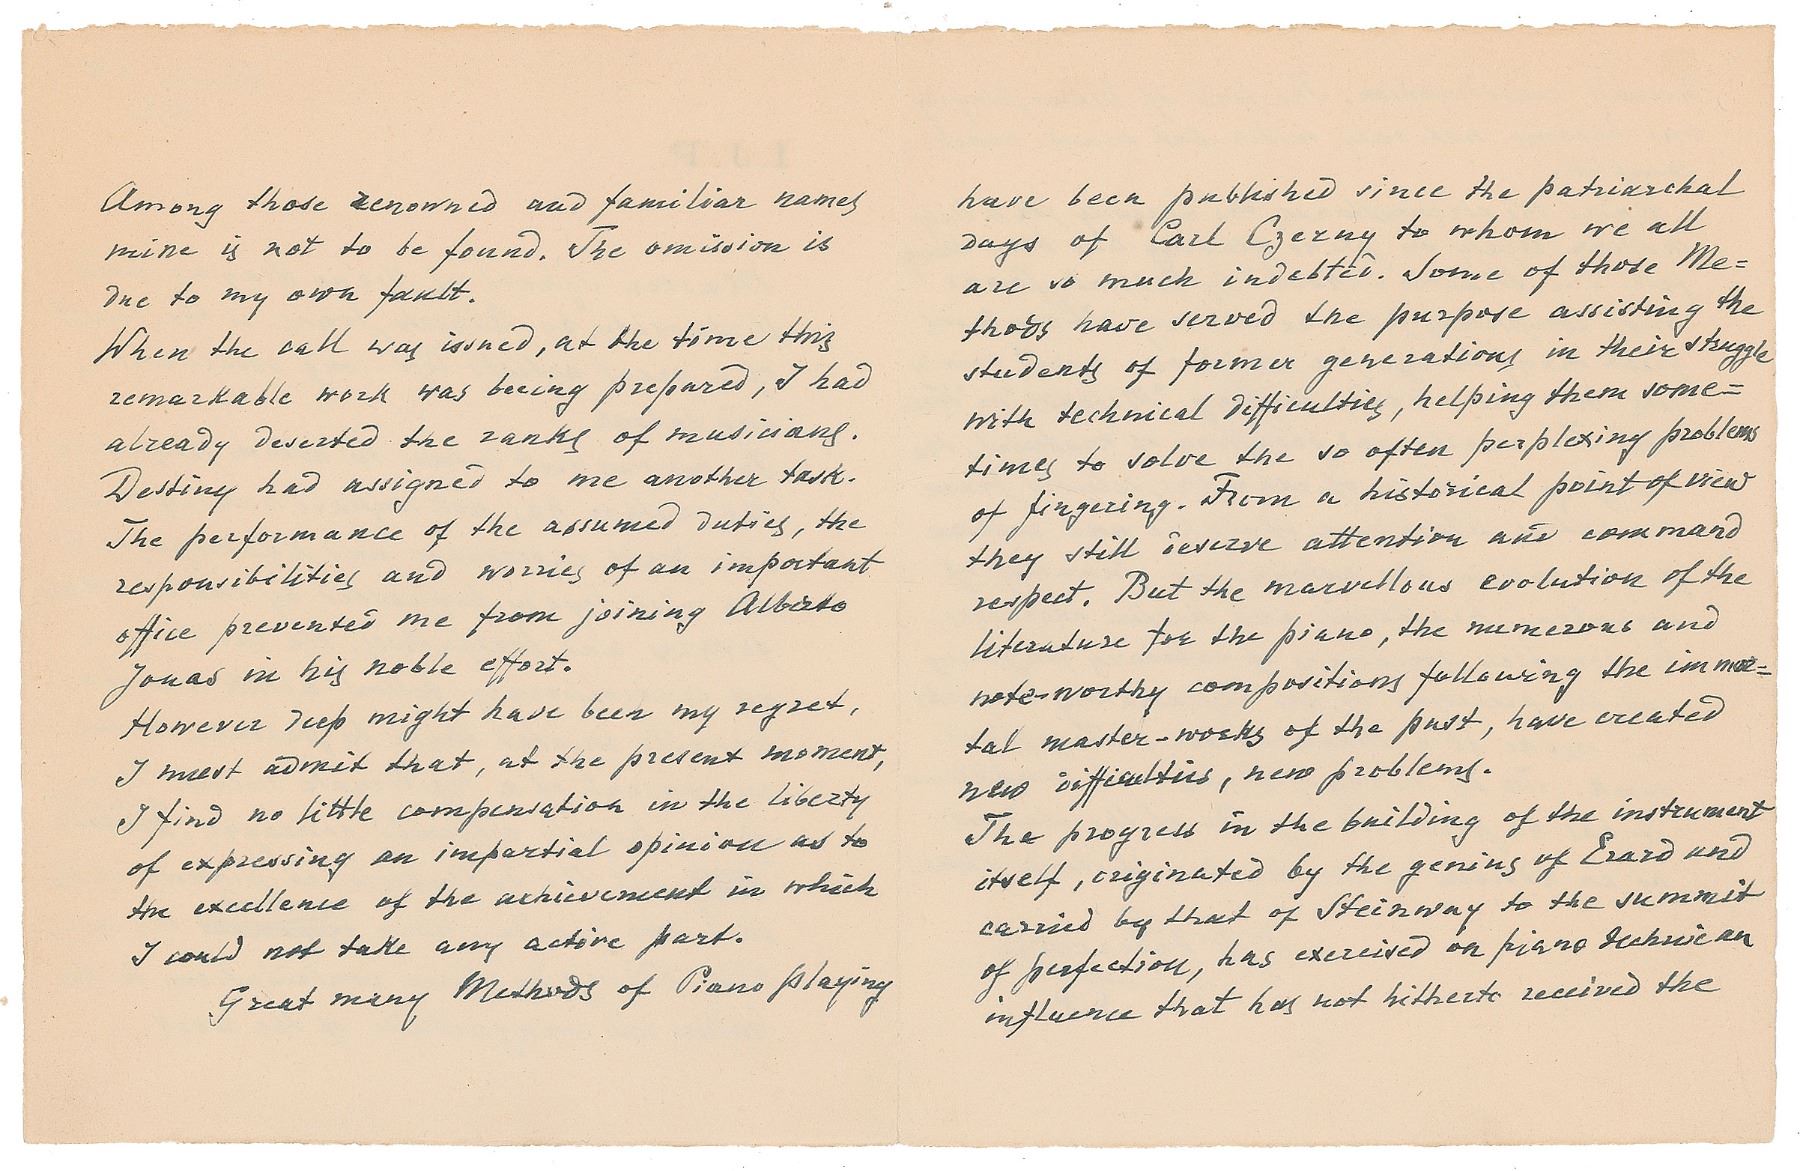 Among those renowned and familiar names
mine is not to be found. The omission is
due to my own fault.
When the call was issued, at the time this
remarkable work was beeing prepared, I had
already deserted the ranks of musicians.
Destiny had assigned to me another task.
The performance of the assumed duties, the
responsibilities and worries of an important
office prevented me from joining Alberto
Jonas in his noble effort.
However deep might have been my regret,
I must admit that, at the present moment,
I find no little compensation in the liberty
of expressing an impartial opinion as to
the excellence of the achievement in which
I could not take any active part.
Great many Methods of Piano playing
have been published since the patriarchal
days of Carl Czerny to whom we all
are so much indebted. Some of those Me=
thods have served the purpose assisting the
students of former generations in their struggle
with technical difficulties, helping them some=
times to solve the so often perplexing problems
of fingering. From a historical point of view
they still deserve attention and command
respect. But the marvellous evolution of the
literature for the piano, the numerous and
note-worthy compositions following the immor=
tal master-works of the past, have created
new difficulties, new problems.
The progress in the building of the instrument
itself, originated by the genius of Erard and
carried by that of Steinway to the summit
of perfection, has exercised on piano technic an
influence that has not hitherto received the